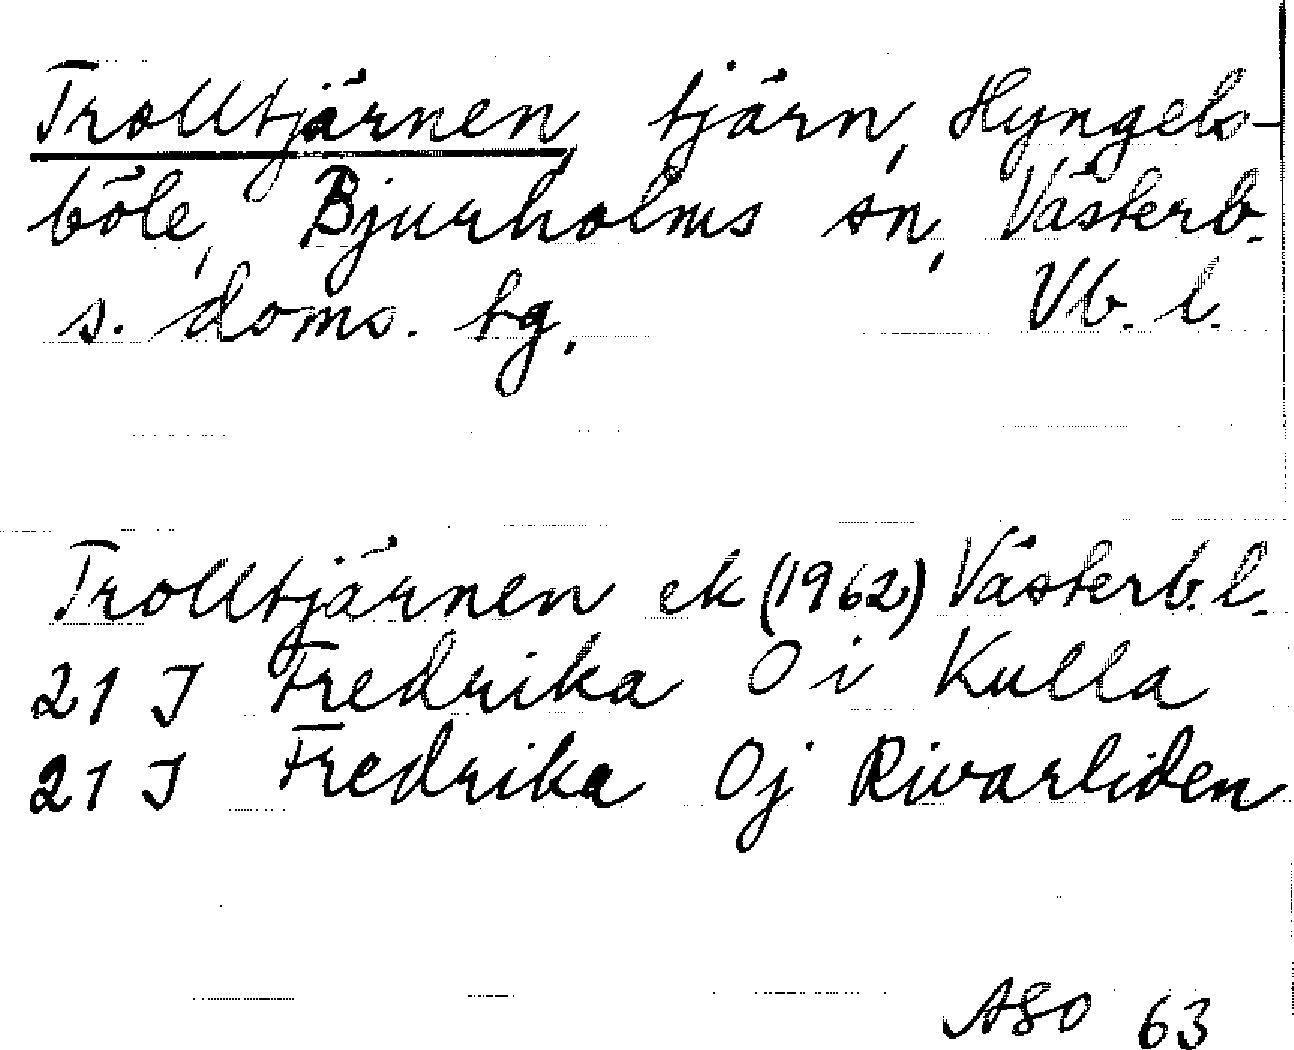 Trolltjärnen, tjärn, Hyngels-
böle, Bjurholms sn, Västerb.
s. doms. tg. Vb. l.
Trolltjärnen ek (1962) Västerb. l.
21 J Fredrika 0 i Kulla
21 J Fredrika 0j Rivarliden
ASO 63